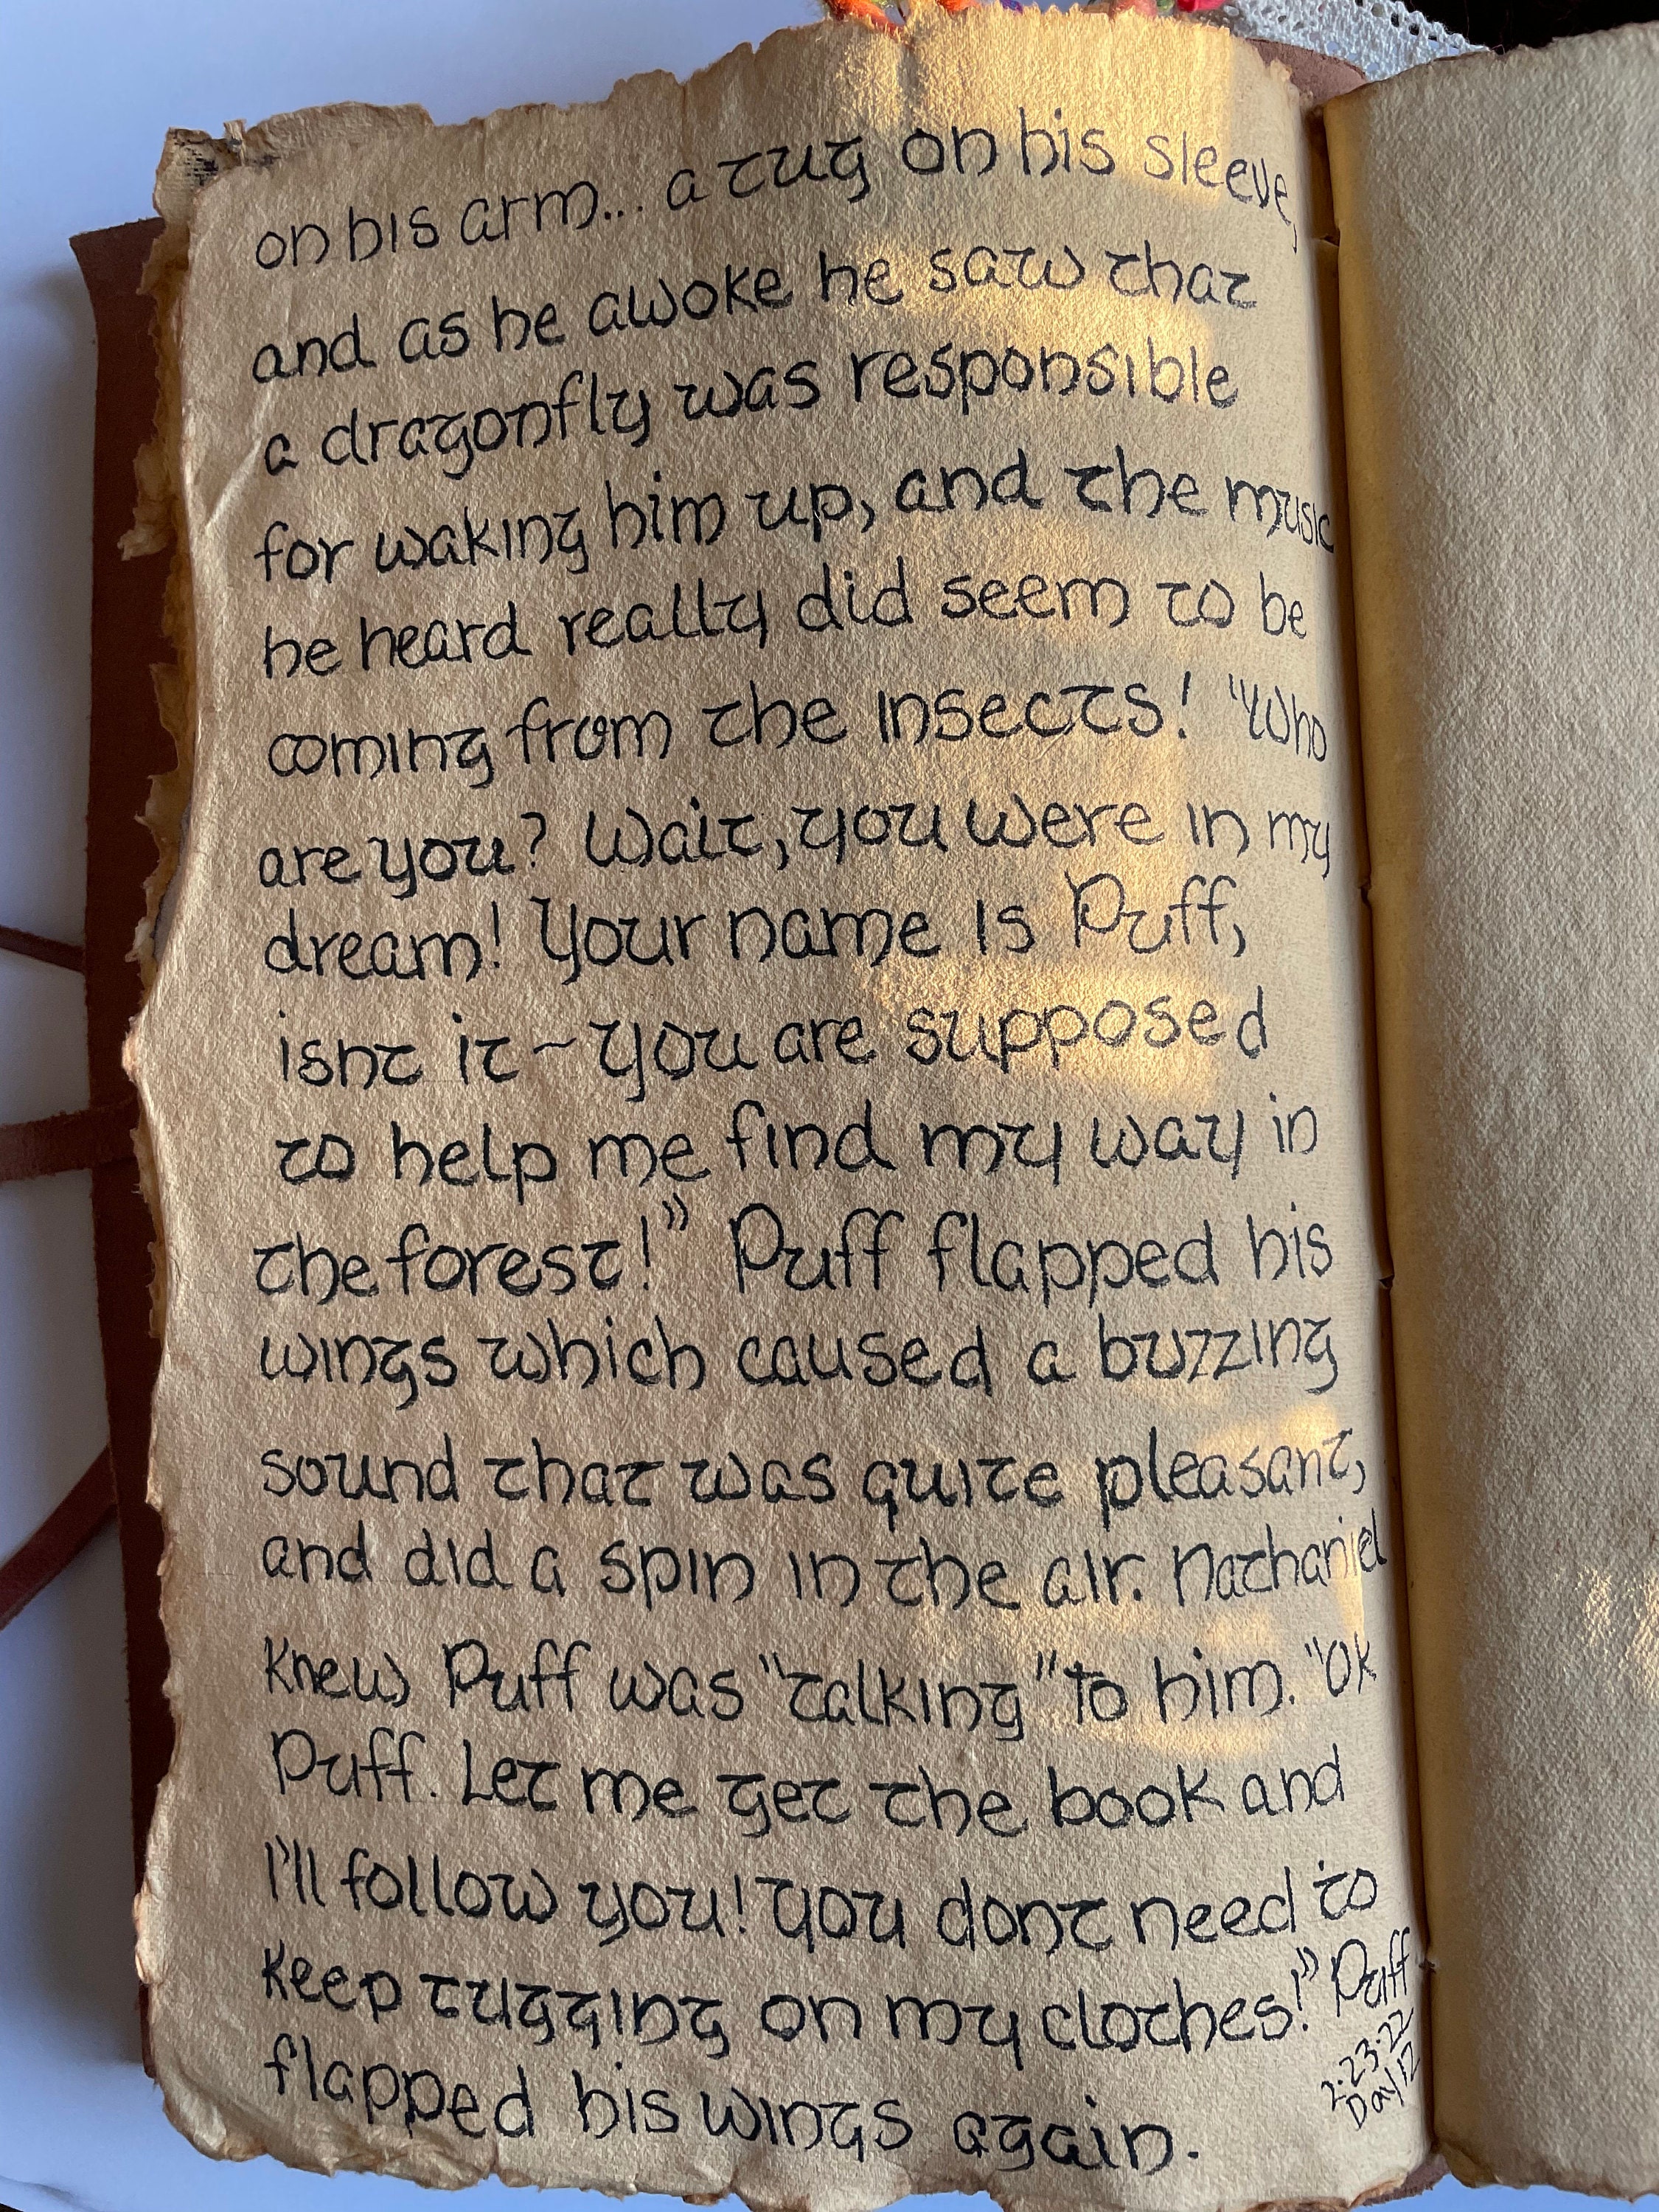 on his arm... a tug on his sleeve,
and as he awoke he saw that
a dragonfly was responsible
for waking him up, and the music
he heard really did seem to be
coming from the insects! "Who
are you? Wait, you were in my
dream! Your name is Puff,
isnt it ~ you are supposed
to help me find my way in
the forest!" Puff flapped his
wings which caused a buzzing
sound that was quite pleasant,
and did a spin in the air. Nathaniel
knew Puff was "talking" to him. "Ok
Puff. Let me get the book and
I'll follow you! You dont need to
keep tugging on my clothes!" Puff
flapped his wings again.
2.23.22
Day 12